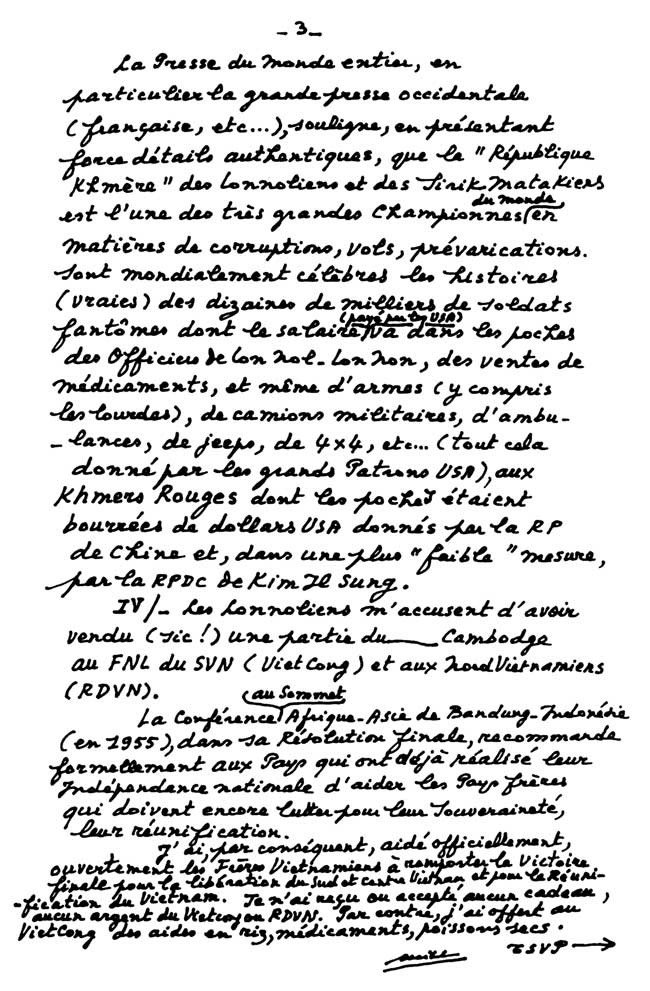 _ 3 _
La Presse du Monde entier, en
particulier la grande presse occidentale
(française, etc...), souligne, en présentant
force détails authentiques, que la "République
Khmère" des lonnoliens et des Sirik Matakiens
est l'une des très grandes Championnes (du monde) en
matières de corruptions, vols, prévarications.
Sont mondialement célèbres les histoires
(vraies) des dizaines de milliers de soldats
fantômes dont le salaire (payé par les USA) va dans les poches
des Officiers de Lon Nol - Lon Non, des ventes de
médicaments, et même d'armes (y compris
les lourdes), de camions militaires, d'ambu-
- lances, de jeeps, de 4x4, etc... (tout cela
donné par les grands Patrons USA), aux
Khmers Rouges dont les poches étaient
bourrées de dollars USA donnés par la RP
de Chine et, dans une plus "faible" mesure,
par la RPDC de Kim Il Sung.
IV/- Les Lonnoliens m'accusent d'avoir
vendu (sic!) une partie du Cambodge
au FNL du SVN (VietCong) et aux Nord Vietnamiens
(RDVN).
La Conférence (au Sommet) Afrique-Asie de Bandung-Indonésie
(en 1955), dans sa Résolution finale, recommande
formellement aux Pays qui ont déjà réalisé leur
Indépendance nationale d'aider les Pays frères
qui doivent encore lutter pour leur Souveraineté,
leur réunification.
J'ai, par conséquent, aidé officiellement,
ouvertement les Frères Vietnamiens à remporter la Victoire
finale pour la libération du Sud et Centre Vietnam et pour la Réuni-
-fication du Vietnam. Je n'ai reçu ou accepté aucun cadeau,
aucun argent du Vietcong ou RDVN. Par contre, j'ai offert au
VietCong des aides en riz, médicaments, poissons secs.
TSVP →